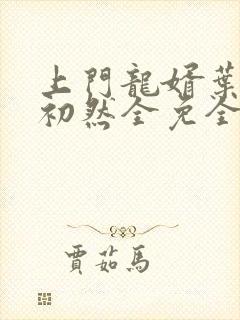 上門龍婿葉
初然全免全
賈茹馬